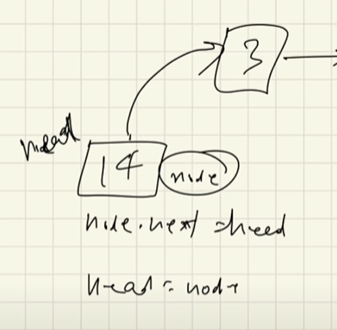 3
head
14 node
node.next = head
head = node